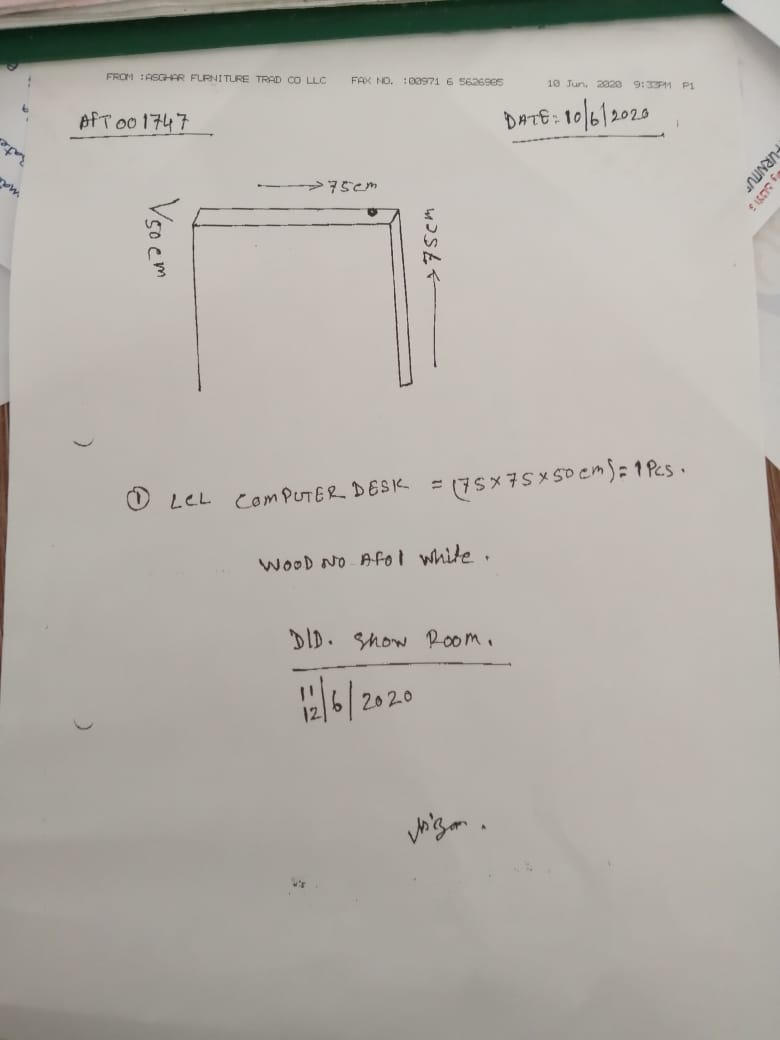 FROM :ASGHAR FURNITURE TRAD CO LLC FAX NO. :00971 6 5626985 10 Jun. 2020 9:33PM P1
AFT001747
DATE: 10/6/2020
75cm
50cm
75cm
① LCL COMPUTER DESK = (75x75x50cm) = 1Pcs.
WOOD NO AF01 White.
D/D. Show Room.
11
12/6/2020